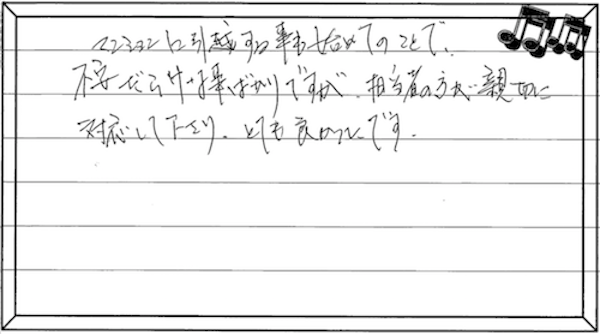 マンションに引越する事も始めてのことで、
不安だらけの事ばかりですが、担当者の方が親切に
対応して下さり、とても良かったです。